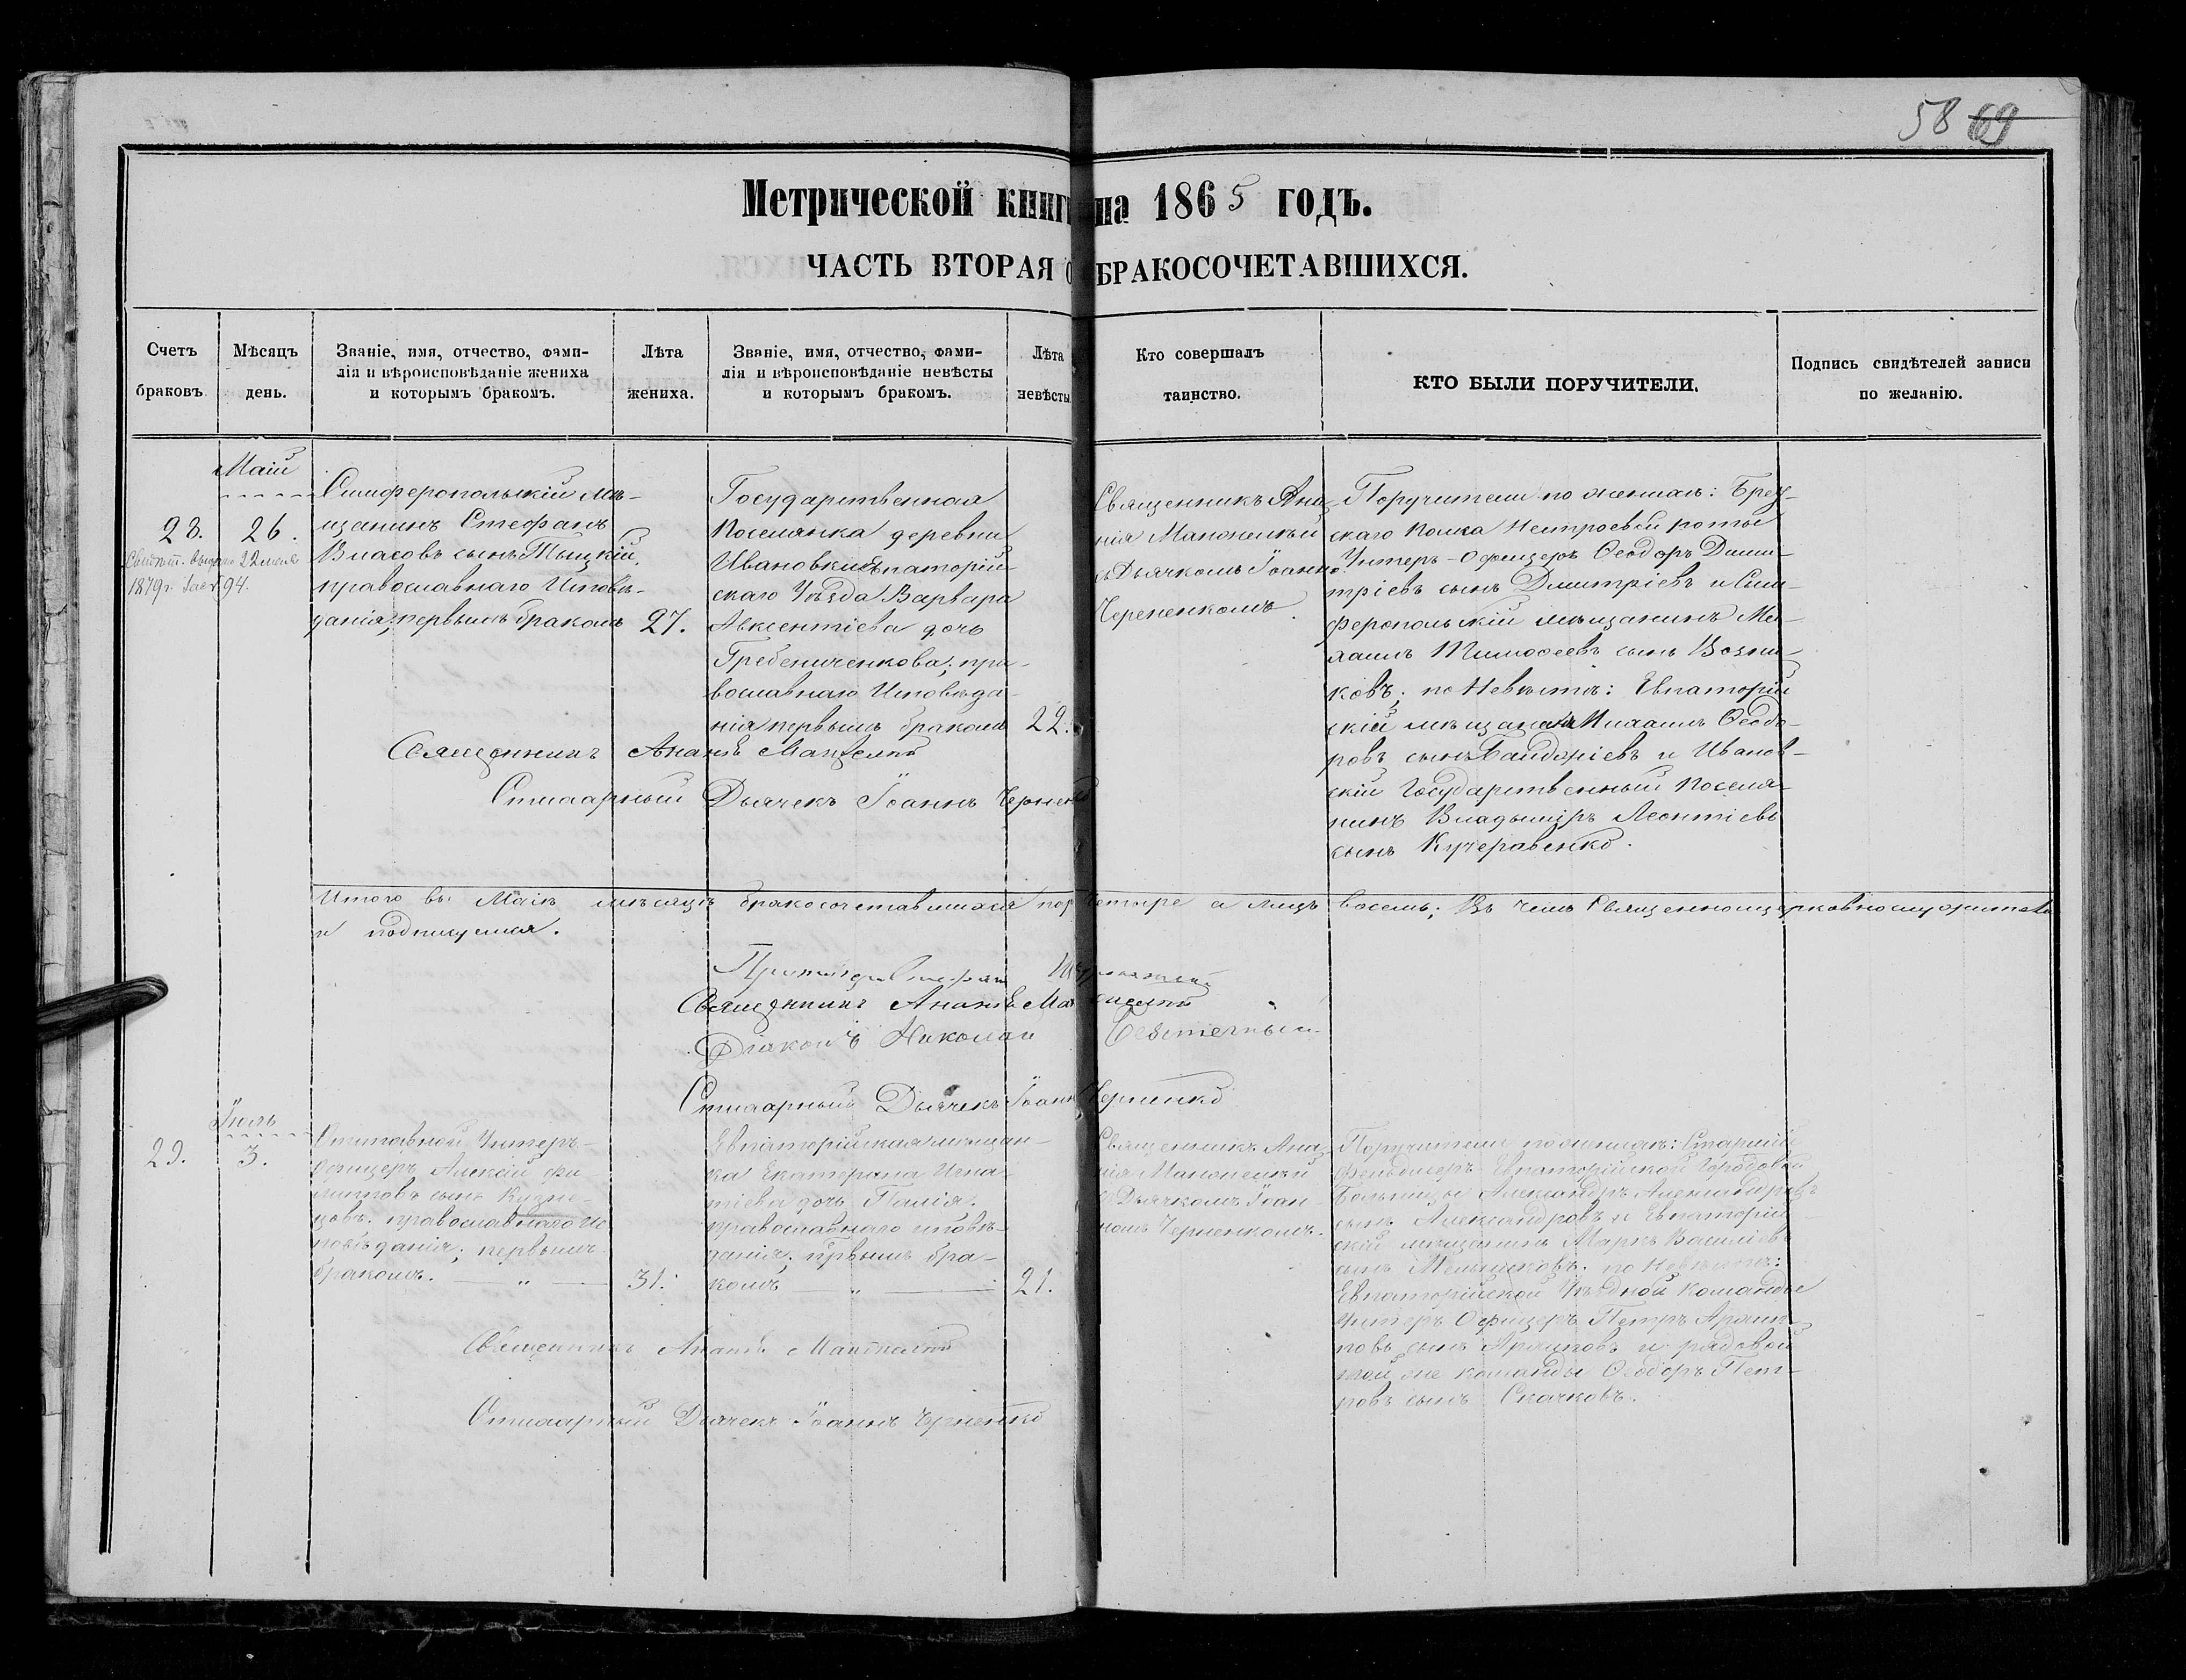 58 69
Метрической книг на 1865 годъ.
ЧАСТЬ ВТОРАЯ О БРАКОСОЧЕТАВШИХСЯ.
Счетъ браковъ.
Мѣсяцъ день.
Званіе, имя, отчество, фами-
лія и вѣроисповѣданіе жениха
и которымъ бракомъ.
Лѣта
жениха.
Званіе, имя, отчество, фами-
лія и вѣроисповѣданіе невѣсты
и которымъ бракомъ.
Лѣта
невѣсты
Кто совершалъ
таинство.
КТО БЫЛИ ПОРУЧИТЕЛИ.
Подпись свидѣтелей записи
по желанію.
Маій
28. 26.
22 июня
1879 г. 94.
Симферопольскій мѣ-
щанинъ Стефанъ
Власовъ сынъ
православнаго Исповѣ-
данія; первымъ бракомъ
27.
Государственная
Поселянка деревни
Ивановки Евпаторій-
скаго Уѣзда Варвара
Авксентіева дочь
Гребениченкова; пра-
вославнаго Исповѣда-
нія первымъ бракомъ
22.
Священникъ Ана-
нія
съ Дьячкомъ Іоанно
Поручители по женихѣ:
скаго полка Нестроевой роты
Унтеръ-Офицеръ Ѳеодоръ Дими-
тріевъ сынъ Дмитріевъ и Сим-
феропольскій мѣщанинъ Ми-
хаилъ Тимоѳеевъ сынъ
ковъ; по Невѣстѣ: Евпаторій
скій мѣщанинъ Михаилъ Ѳеодо-
ровъ сынъ и Иванов-
скій Государственный Поселя-
нинъ Владиміръ Леонтіевъ
сынъ Кучеравенко.
Священникъ Ананія
Стихарный Дьячекъ Іоаннъ Черненко
Итого въ Маіѣ мѣсяцѣ бракосочетавшихся четыре а лицъ восемь; Въ чемъ Священноцерковнослужители
и подписуемся.
Священникъ Ананія
Діаконъ Николай
Стихарный Дьячекъ Іоаннъ Черненко
Іюль
29. 3.
Отставной Унтеръ-
офицеръ Алексій Фи-
липповъ сынъ Кузне-
цовъ. православнаго Ис
повѣданія; первымъ
бракомъ. — „ —
31.
Евпаторійская мѣщан-
ка Екатерина Игна-
тіева дочь
православнаго исповѣ-
данія; првымъ бра-
комъ — „ —
21.
Священникъ Ана-
нія
съ Дьячкомъ Іоан-
номъ Черненкомъ.
Поручители по женихѣ: Старшій
Фельдшеръ Евпаторійской Городовой
Больницы Александръ Александровъ
сынъ Александровъ и Евпаторій-
скій мѣщанинъ Маркъ Василіевъ
сынъ Мельниковъ. по Невѣстѣ:
Евпаторійской Уѣздной Команды
Унтеръ Офицеръ Петръ Архип-
повъ сынъ Архиповъ и рядовой
той же команды Ѳеодоръ Пет-
ровъ сынъ Скачковъ.
Священникъ Ананія
Стихарный Дьячекъ Іоаннъ Черненко